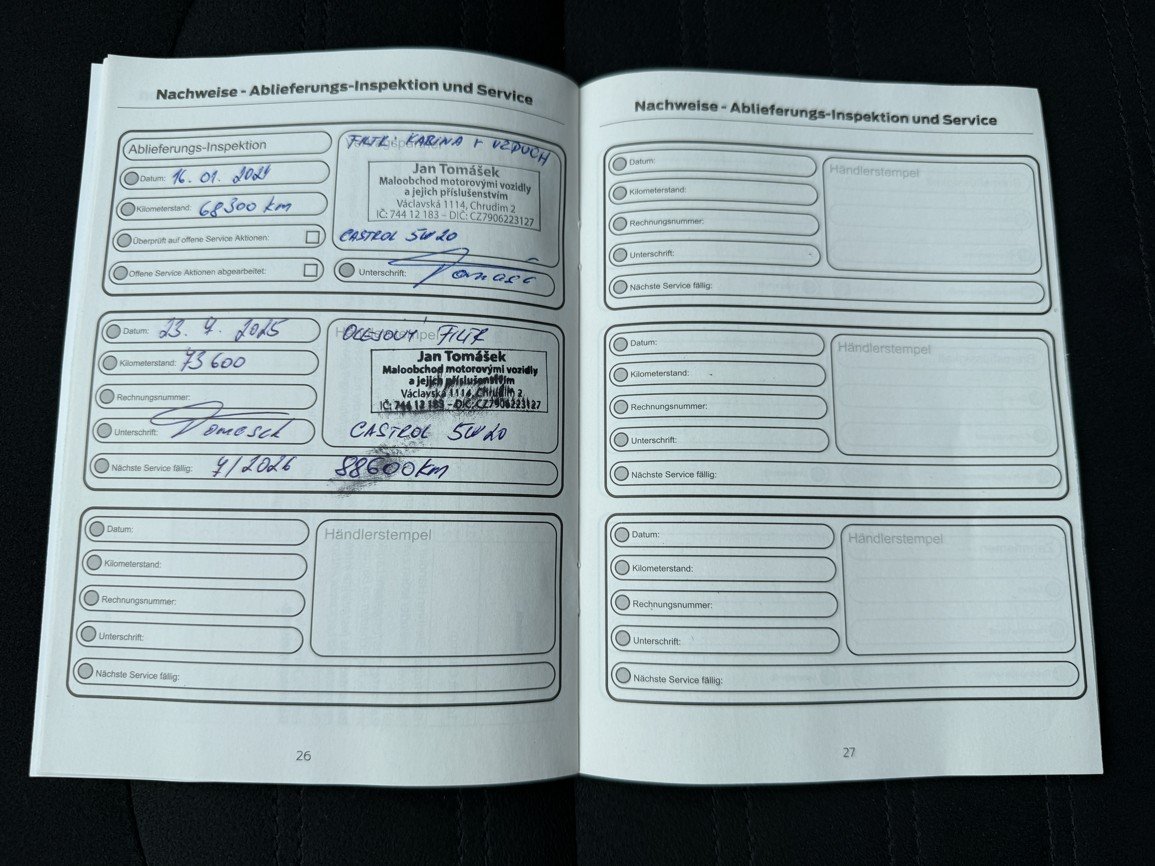 Nachweise - Ablieferungs-Inspektion und Service
Ablieferungs-Inspektion
Datum: 16. 01. 2024
Kilometerstand: 68300 km
Überprüft auf offene Service Aktionen:
Offene Service Aktionen abgearbeitet:
FILTR: KABINA + VZDUCH
Jan Tomášek
Maloobchod motorovými vozidly
a jejich příslušenstvím
Václavská 1114, Chrudim 2
IČ: 744 12 183 – DIČ: CZ7906223127
CASTROL 5W20
Unterschrift:
Datum: 23. 7. 2025
Kilometerstand: 73600
Rechnungsnummer:
Unterschrift:
OLEJOVÝ FILTR
Jan Tomášek
Maloobchod motorovými vozidly
a jejich příslušenstvím
Václavská 1114, Chrudim 2
IČ: 744 12 183 – DIČ: CZ7906223127
CASTROL 5W20
Nächste Service fällig: 7/2026 88600km
Datum:
Kilometerstand:
Rechnungsnummer:
Unterschrift:
Händlerstempel
Nächste Service fällig:
26
Nachweise - Ablieferungs-Inspektion und Service
Datum:
Kilometerstand:
Rechnungsnummer:
Unterschrift:
Händlerstempel
Nächste Service fällig:
Datum:
Kilometerstand:
Rechnungsnummer:
Unterschrift:
Händlerstempel
Nächste Service fällig:
Datum:
Kilometerstand:
Rechnungsnummer:
Unterschrift:
Händlerstempel
Nächste Service fällig:
27